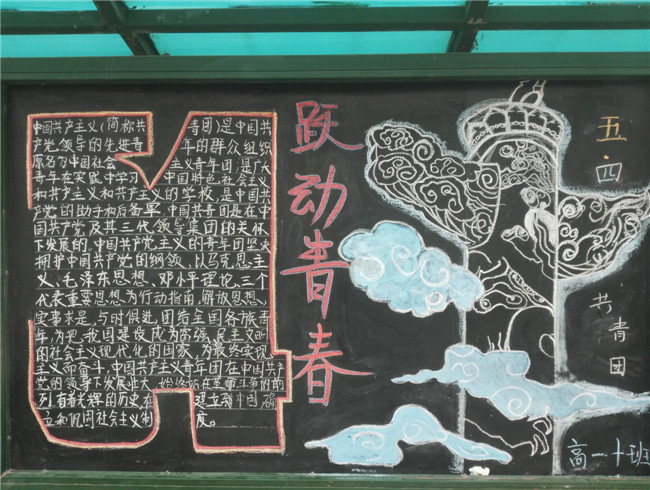 中国共产主义(简称共青团)是中国共
产党领导的先进青年的群众组织
原名为中国社会主义青年团,是广大
青年在实践中学习中国特色社会主义
和共产主义和共产主义的学校,是中国共
产党的助手和后备军.中国共青团是在中
国共产党及其三代领导集团的关怀
下发展的.中国共产党主义的青年团坚决
拥护中国共产党的纲领、以马克思主
义、毛泽东思想、邓小平理论、三个
代表重要思想、为行动指南,解放思想、
实事求是、与时俱进,团结全国各族青
年,为把我国建设成为富强、民主文明
的社会主义现代化的国家,为最终实现
主义而奋斗,中国共产主义青年团在中国共产
党的领导下发展壮大、始终站在革命斗争的前
列,有着光辉的历史在建立新中国,确
立和巩固社会主义制度。
跃动青春
五四
共青团
高一十班